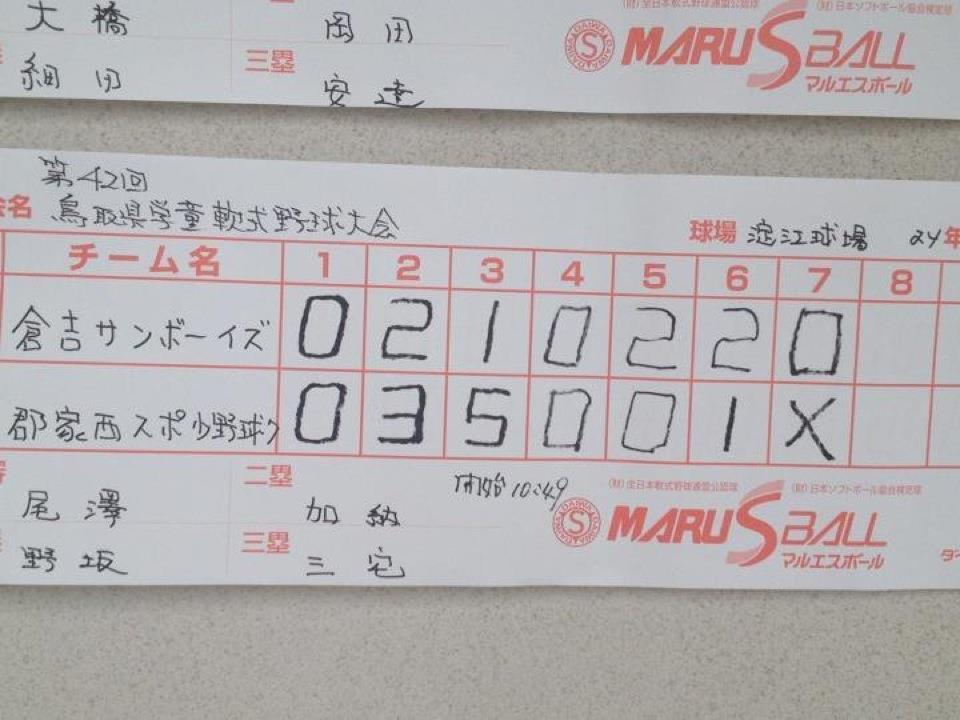 大橋 岡田
(財)全日本軟式野球連盟公認球 (財)日本ソフトボール協会検定球
細田 三塁 安達
MARU S BALL
マルエスボール
第42回
会名 鳥取県学童軟式野球大会 球場 淀江球場 24年
チーム名 1 2 3 4 5 6 7 8
倉吉サンボーイズ 0 2 1 0 2 2 0
郡家西スポ少野球ク 0 3 5 0 0 1 X
尾澤 二塁 加納 開始10:49
(財)全日本軟式野球連盟公認球 (財)日本ソフトボール協会検定球
野坂 三塁 三宅
MARU S BALL
マルエスボール